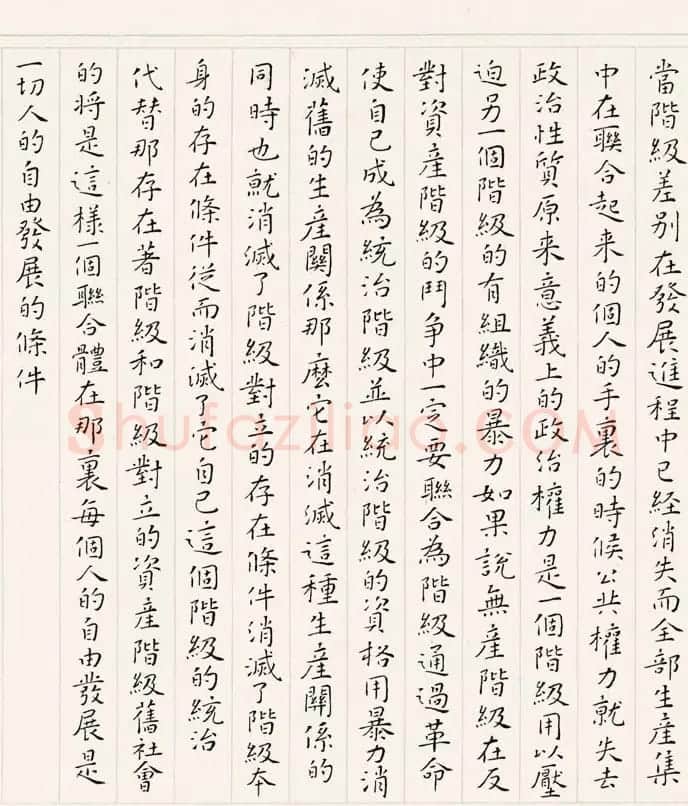 當階級差別在發展進程中已經消失而全部生產集
中在聯合起来的個人的手裏的時候公共權力就失去
政治性質原来意義上的政治權力是一個階級用以壓
迫另一個階級的有組織的暴力如果說無產階級在反
對資產階級的鬥争中一定要聯合為階級通過革命
使自己成為統治階級並以統治階級的資格用暴力消
滅舊的生產關係那麼它在消滅這種生產關係的
同時也就消滅了階級對立的存在條件消滅了階級本
身的存在條件從而消滅了它自己這個階級的統治
代替那存在著階級和階級對立的資產階級舊社會
的將是這樣一個聯合體在那裏每個人的自由發展是
一切人的自由發展的條件
Shufaziliao.COM